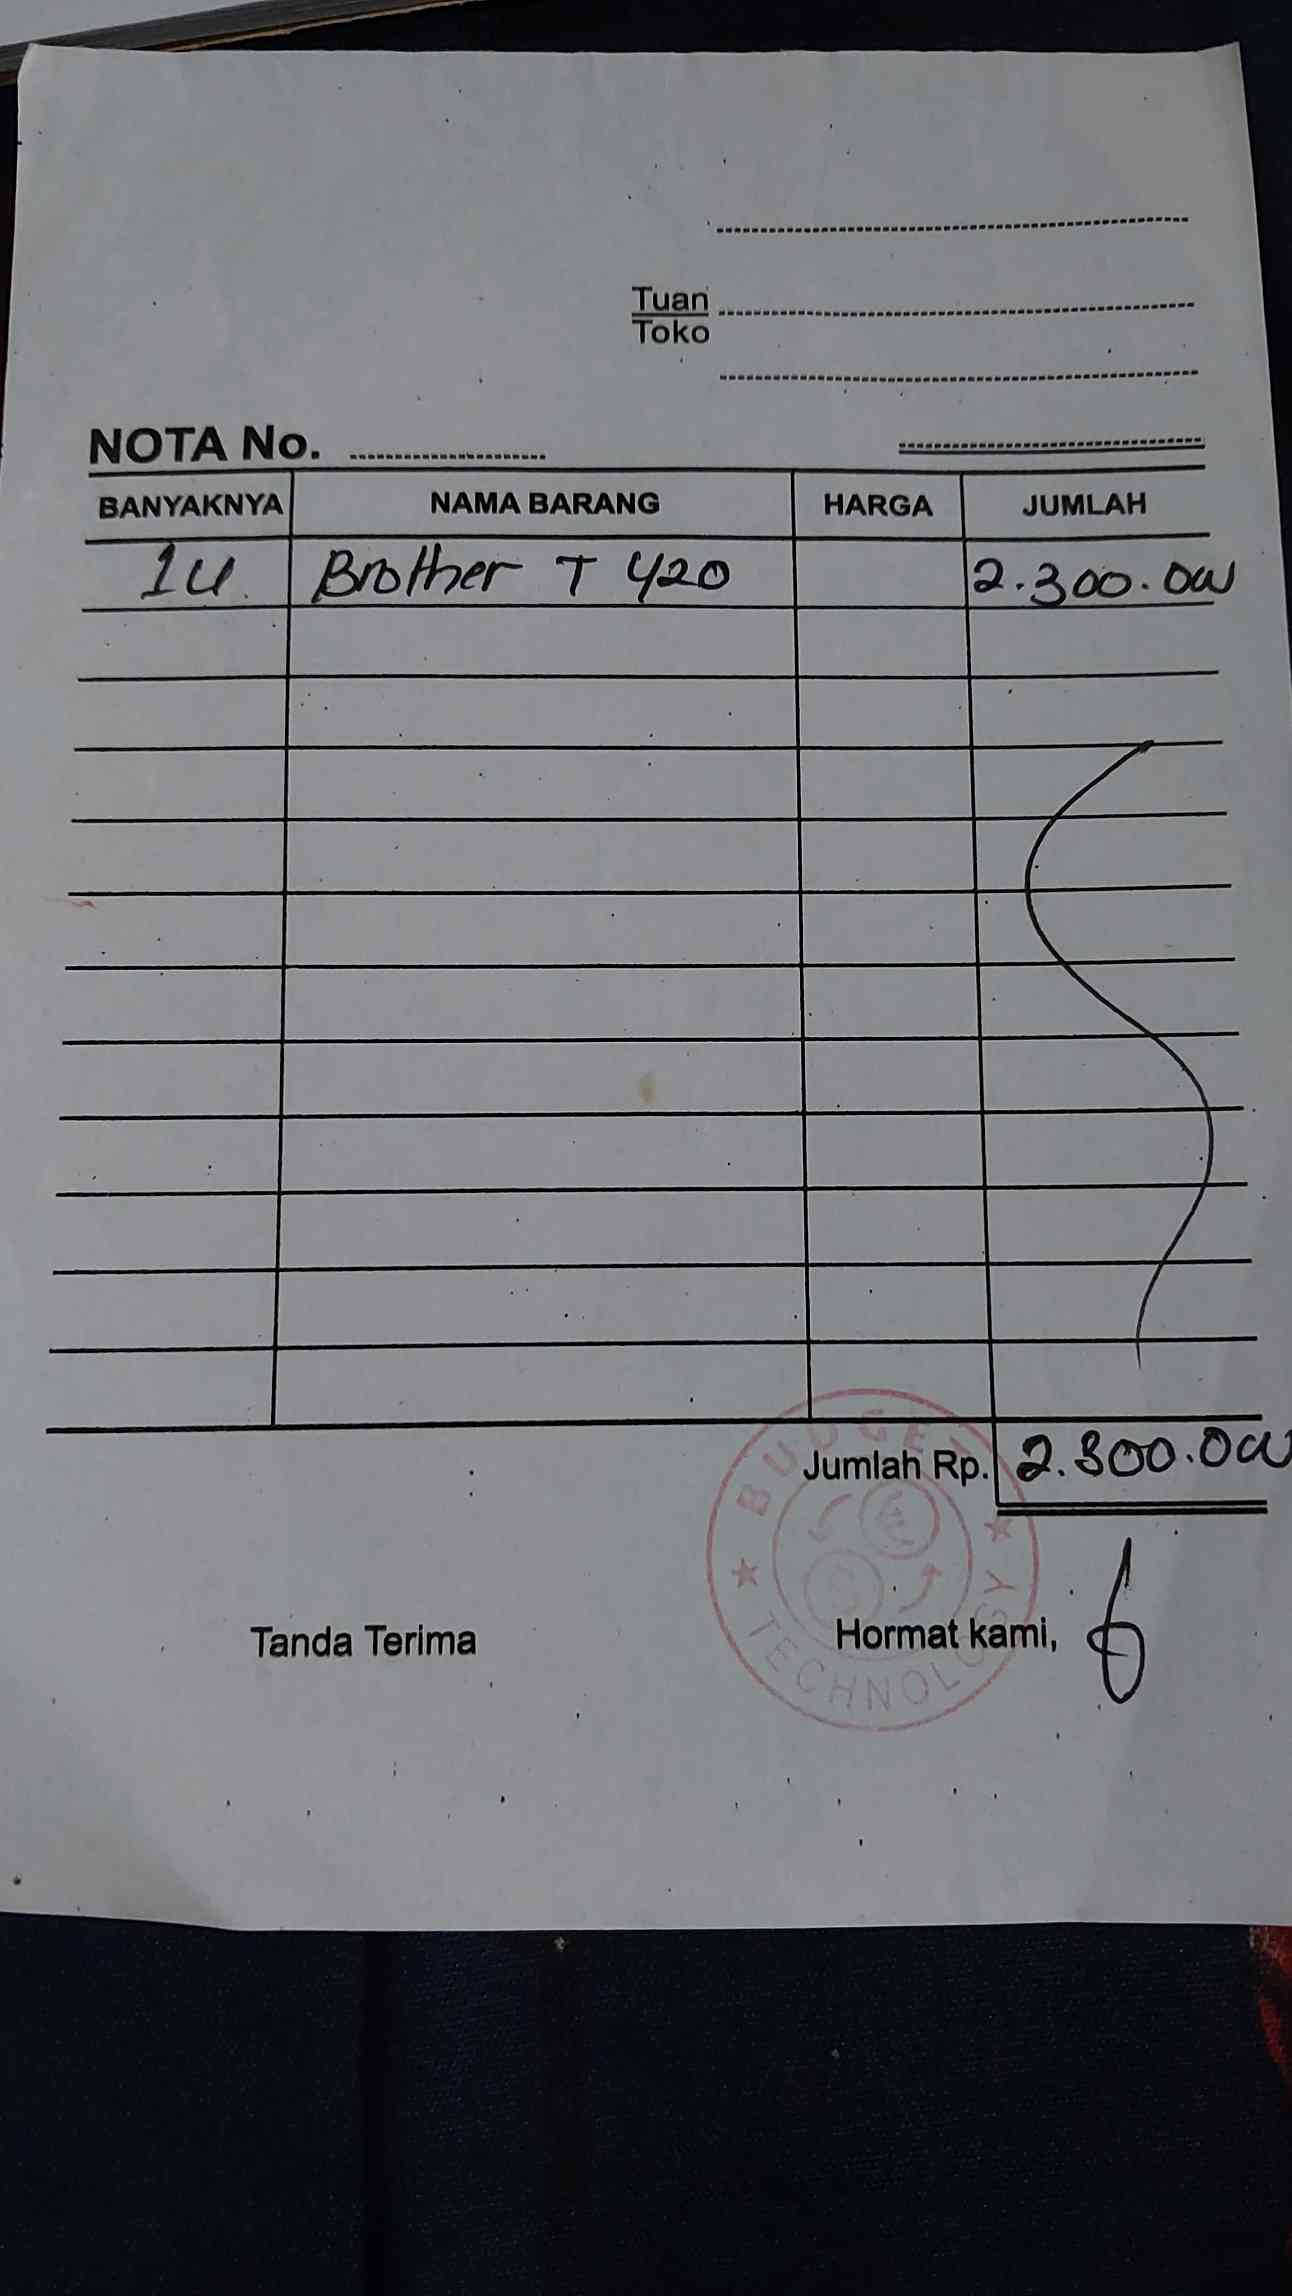 Tuan
Toko
NOTA No.
BANYAKNYA NAMA BARANG HARGA JUMLAH
1 U. Brother T 420 2.300.000
Jumlah Rp. 2.300.000
BUDGET
TECHNOLOGY
Tanda Terima Hormat kami,